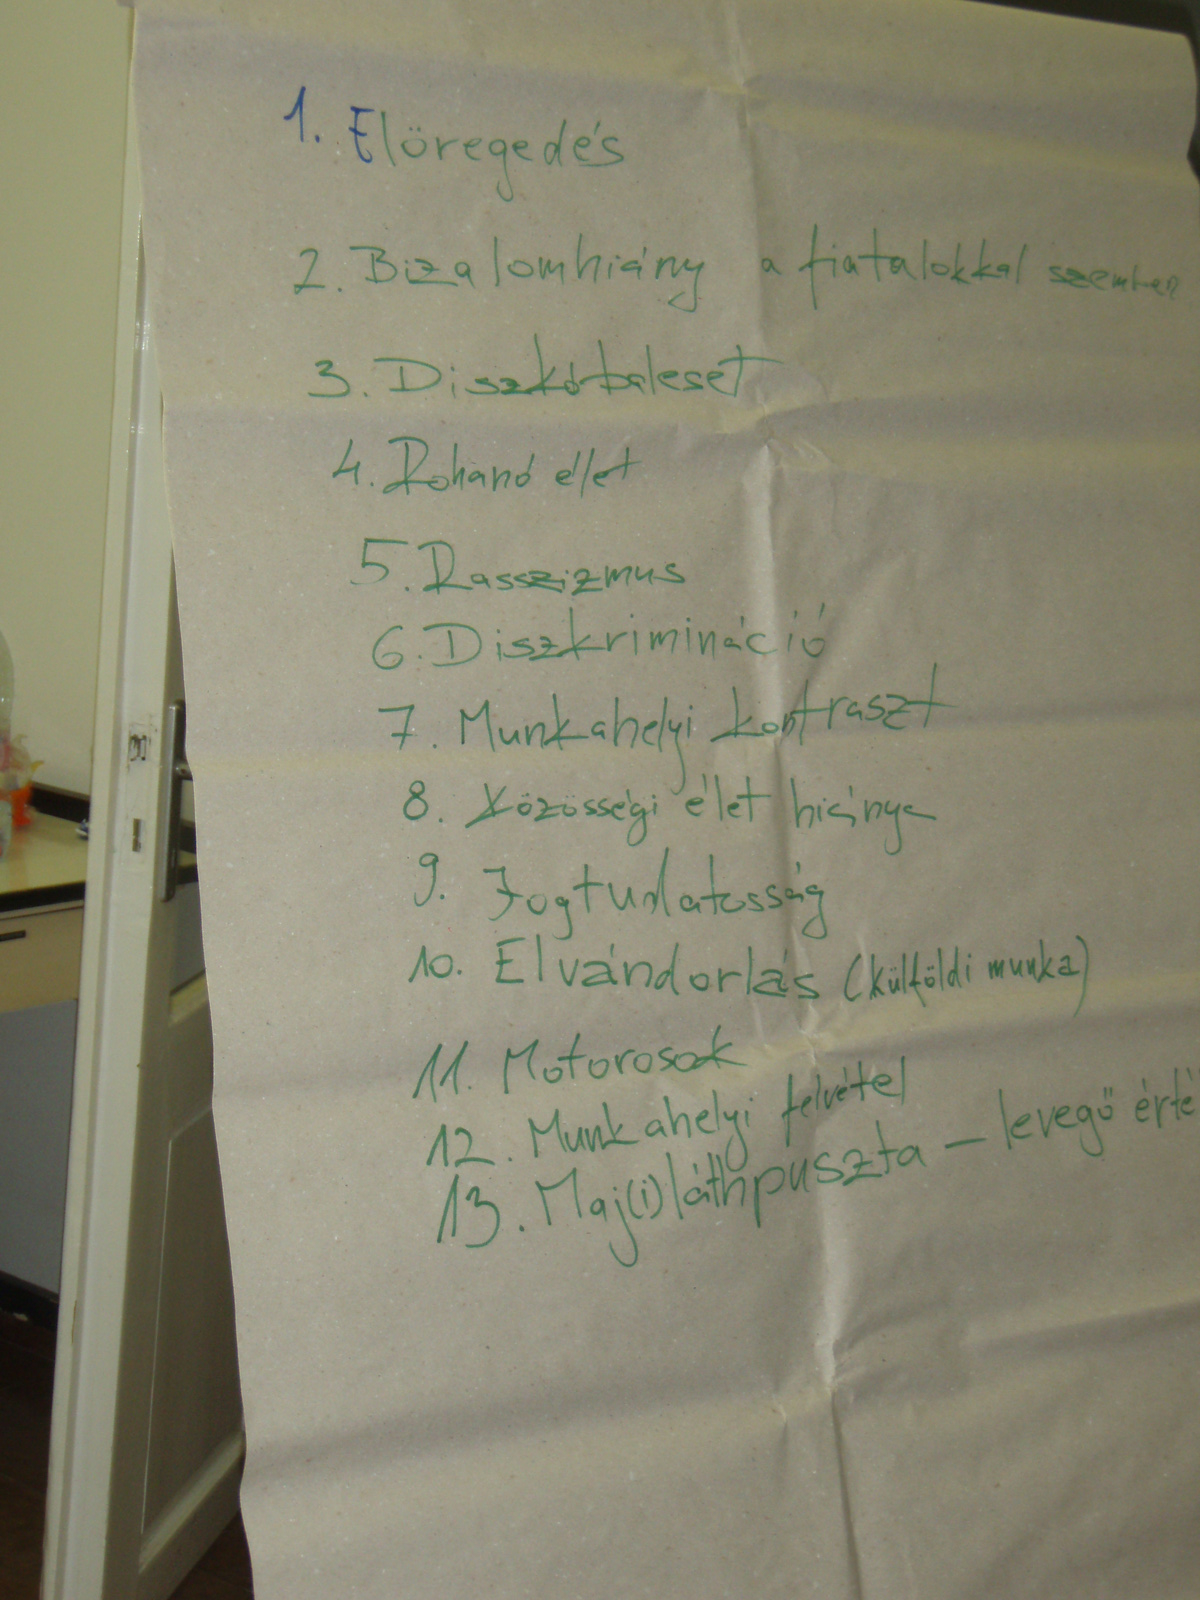 1. Elöregedés
2. Bizalomhiány a fiatalokkal szemben
3. Diszkóbaleset
4. Rohanó élet
5. Rasszizmus
6. Diszkrimináció
7. Munkahelyi kontraszt
8. Közösségi élet hiánya
9. Jogtudatosság
10. Elvándorlás (külföldi munka)
11. Motorosok
12. Munkahelyi felvétel
13. Maj(i)láthpuszta – levegő érté